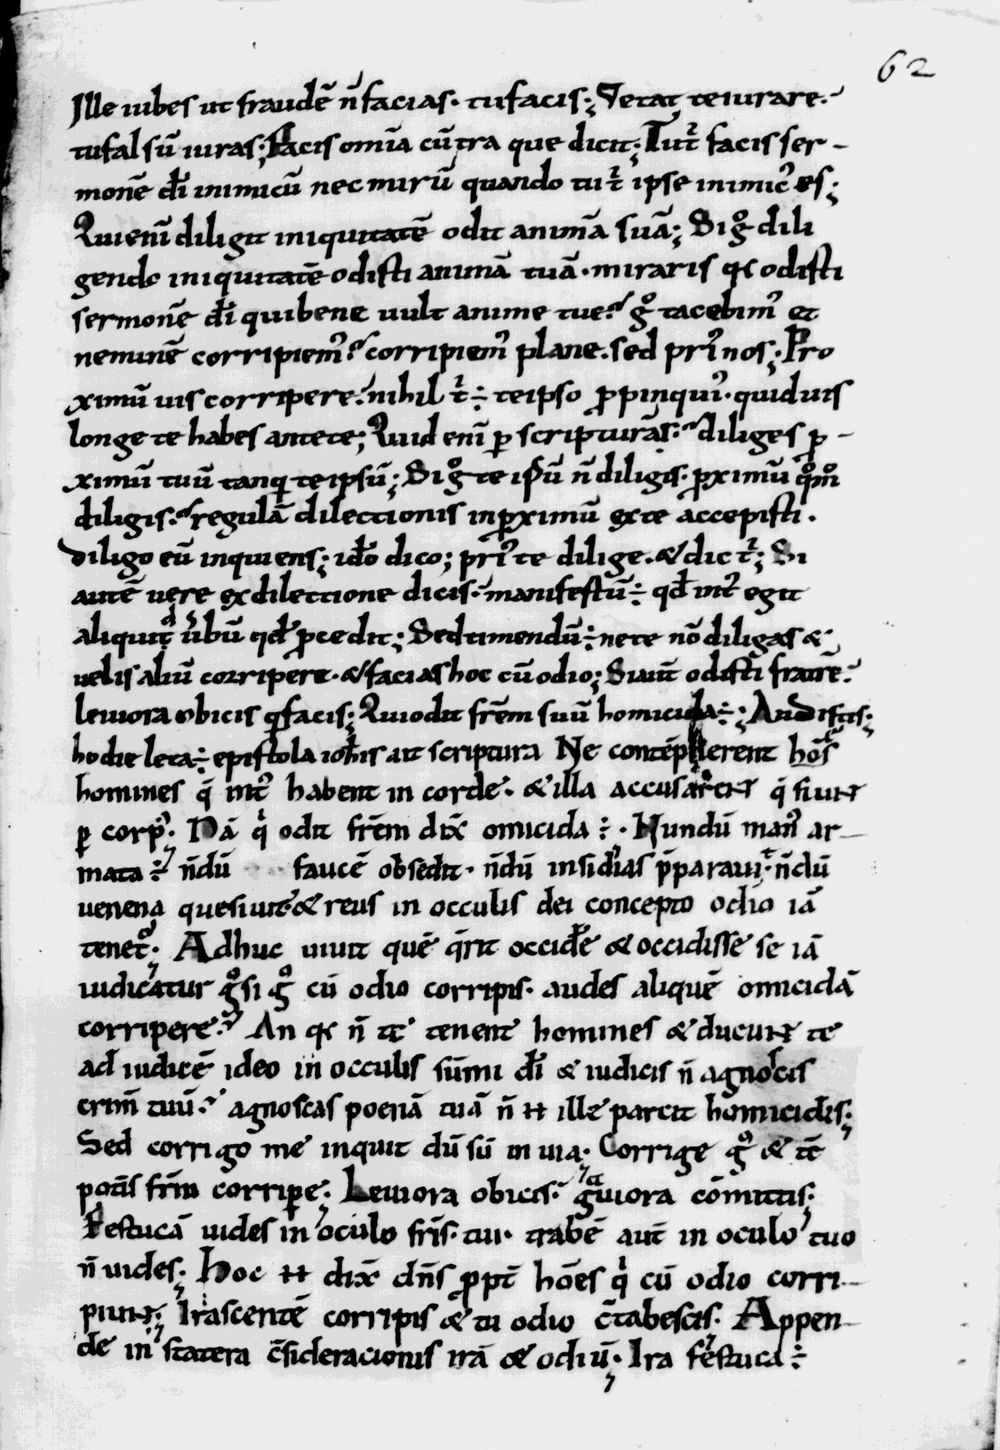 62
Ille iubes ut fraudē n̄ facias· tu facis; Vetat te iurare·
tu falsū iuras; Facis om̄ia cū tra que dicit; Tu t̄ facis ser-
monē dī inimicū nec mirū quando tu t̄ ipse inimicꝰ es;
Qui enī diligit iniquitatē odit animā suā; Si gͦ dili
gendo iniquitatē odisti animā tuā· miraris qͥ odisti
sermonē dī qui bene uult anime tue? gͦ tacebimꝰ et
neminē corripiemꝰ? corripiemꝰ plane· sed prī nos; Pro
ximū uis corripere? nihil t̄ ÷ te ipso ꝓpinquiꝰ· quid uis
longe te habes ante te; Quid enī ꝑ scripturā? diliges ꝓ-
ximū tuū tanqͣ te ipsū; Si gͦ te ipsū n̄ diligis· ꝓximū qͦmͦ
diligis? regulā dilectionis in ꝓximū ex te accepisti·
Diligo eū inquiens; idō dico; prī te dilige· & dic t̄; Si
autē uere ex dilectione dicis· manifestū ÷ qd̄ int̄ egit
aliquit ūbū qd̄ ꝓcedit; Sed timendū ÷ ne te nō diligas &
uelis aliū corripere· & facias hoc cū odio; Si aūt odisti fratrē?
leuiora obicis qͣ facis; Qui odit frēm suū homicida ÷; Audistis;
hodie lecta ÷ epistola iohīs ait scriptura Ne contēpnerent hōs
homines q̄ int̄ habent in corde· & illa accusarent q̄ fiunt
ꝑ corpꝰ· Nā qͥ odit frēm dix̄ omicida ÷· Nundū manꝰ ar-
mata ÷ n̄dū faucē obsedit· n̄dū insidias p̄parauit· n̄dū
uenena quesiuit· & reus in occulis dei concepto odio iā
tenet᷑· Adhuc uiuit quē q̄rit occidē & occidisse se iā
iudicatur gͦ si gͦ cū odio corripis· audes aliquē omicidā
corripere? An qͥ n̄ te tenent homines & ducunt te
ad iudicē ideo in occulis sūmi dī & iudicis n̄ agnoscis
crim̄ tuū? agnoscas poenā tuā n̄ ħ ille parcit homicidis;
Sed corrigo me inquit dū sū in uia· Corrige gͦ & tc̄
potīs frēm corripe; Leuiora obicis· gͣuiora cōmittis;
Festucā uides in oculo frīs· tui· trabē aūt in oculo tuo
n̄ uides; Hoc ħ dix̄ dn̄s ꝓpt̄ hōes qͥ cū odio corri-
piunt; Irascentē corripis & tu odio c̄tabescis· Appen-
de in statera c̄sideracionis irā & odiū· Ira festuca ÷